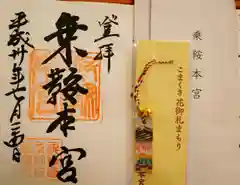 登拝
乗鞍本宮
平成卅年七月三十日
こまくさ花御札まもり
乗鞍本宮